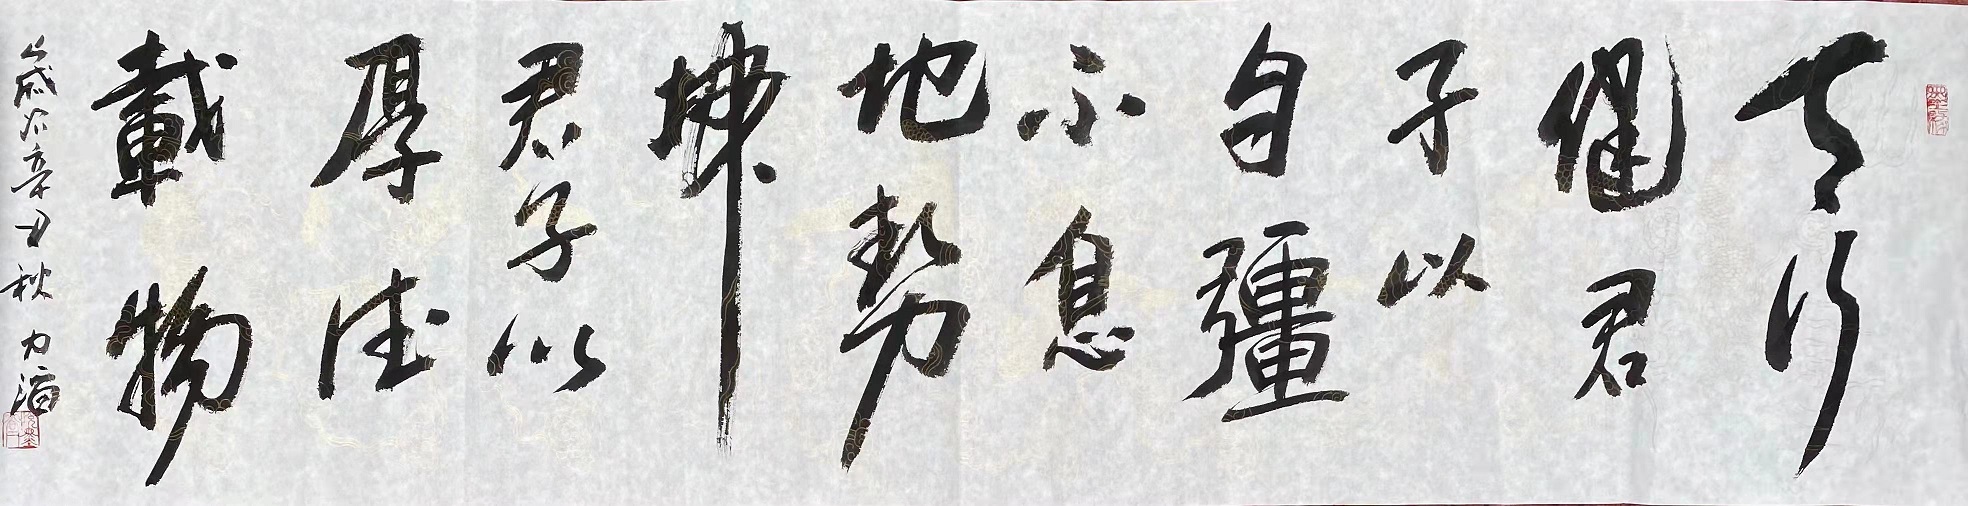 天行
健君
子以
自彊
不息
地势
坤
君子以
厚德
载物
岁次辛丑秋力滔